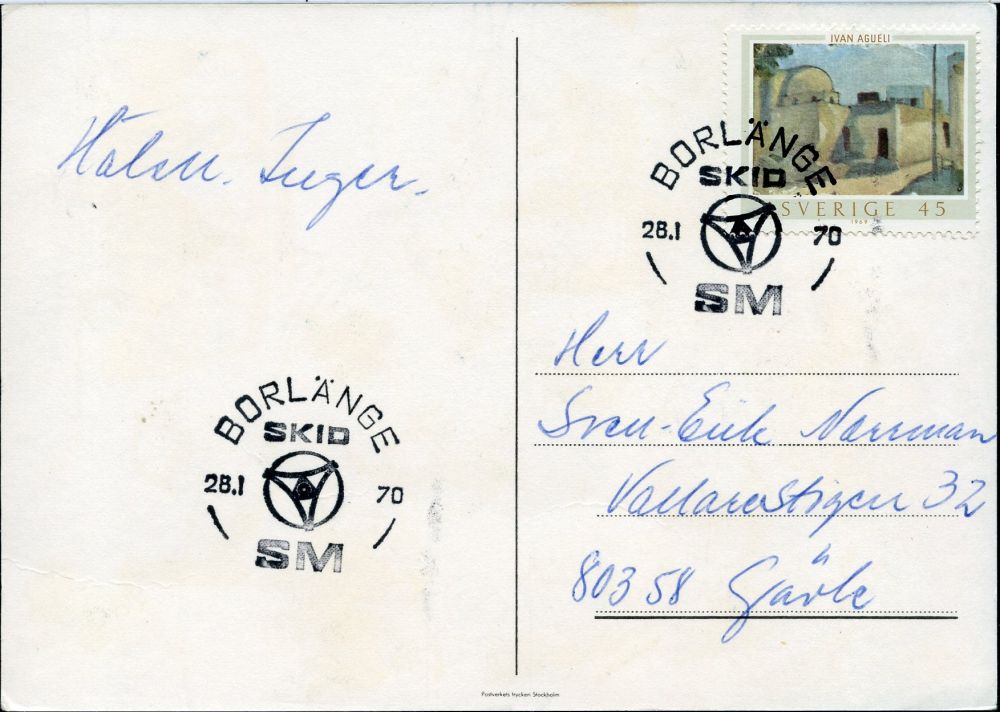 IVAN AGUELI
SVERIGE 45
1969
BORLÄNGE
SKID
28.1 70
SM
Hälsn. Inger.
Herr
Sven-Erik Norrman
80358 Gävle
32
BORLÄNGE
SKID
28.1 70
SM
Postverkets tryckeri Stockholm